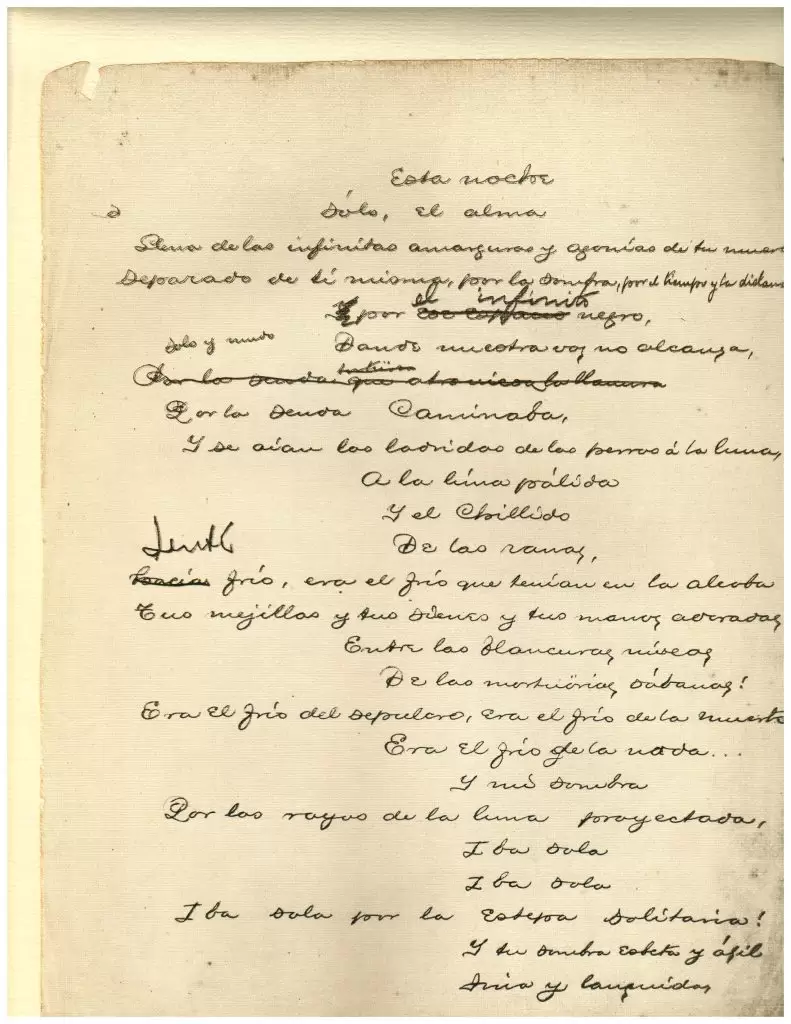 Esta noche
Sólo, el alma
Llena de las infinitas amarguras y agonías de tu muer
Separado de tí misma, por la sombra, por el tiempo y la distan
el infinito
Y por negro,
Donde nuestra voz no alcanza,
solo y mudo
Por la senda que atraviesa la llanura
Por la senda Caminaba,
Y se oían los ladridos de los perros á la luna,
A la luna pálida
Y el Chillido
De las ranas,
Sentí
hacía frío, era el frío que tenían en la alcoba
Tus mejillas y tus sienes y tus manos adoradas
Entre las blancuras níveas
De las mortuörias sábanas!
Era el frío del sepulcro, era el frío de la muerte
Era el frío de la nada...
Y mi sombra
Por los rayos de la luna proyectada,
Iba sola
Iba sola
Iba sola por la estepa solitaria!
Y tu sombra esbelta y ágil
Fina y languida,